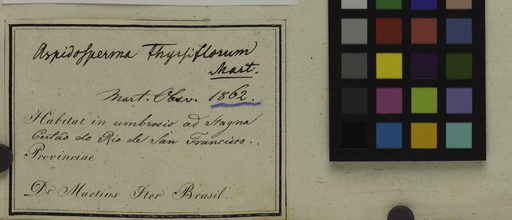 Aspidosperma Thyrsiflorum
Mart.
Mart. Obsv. 1862.
Habitat in umbrosis ad Stagna
Certão do Rio de San Francisco.
Provinciae
Dr. Martius Iter Brasil.